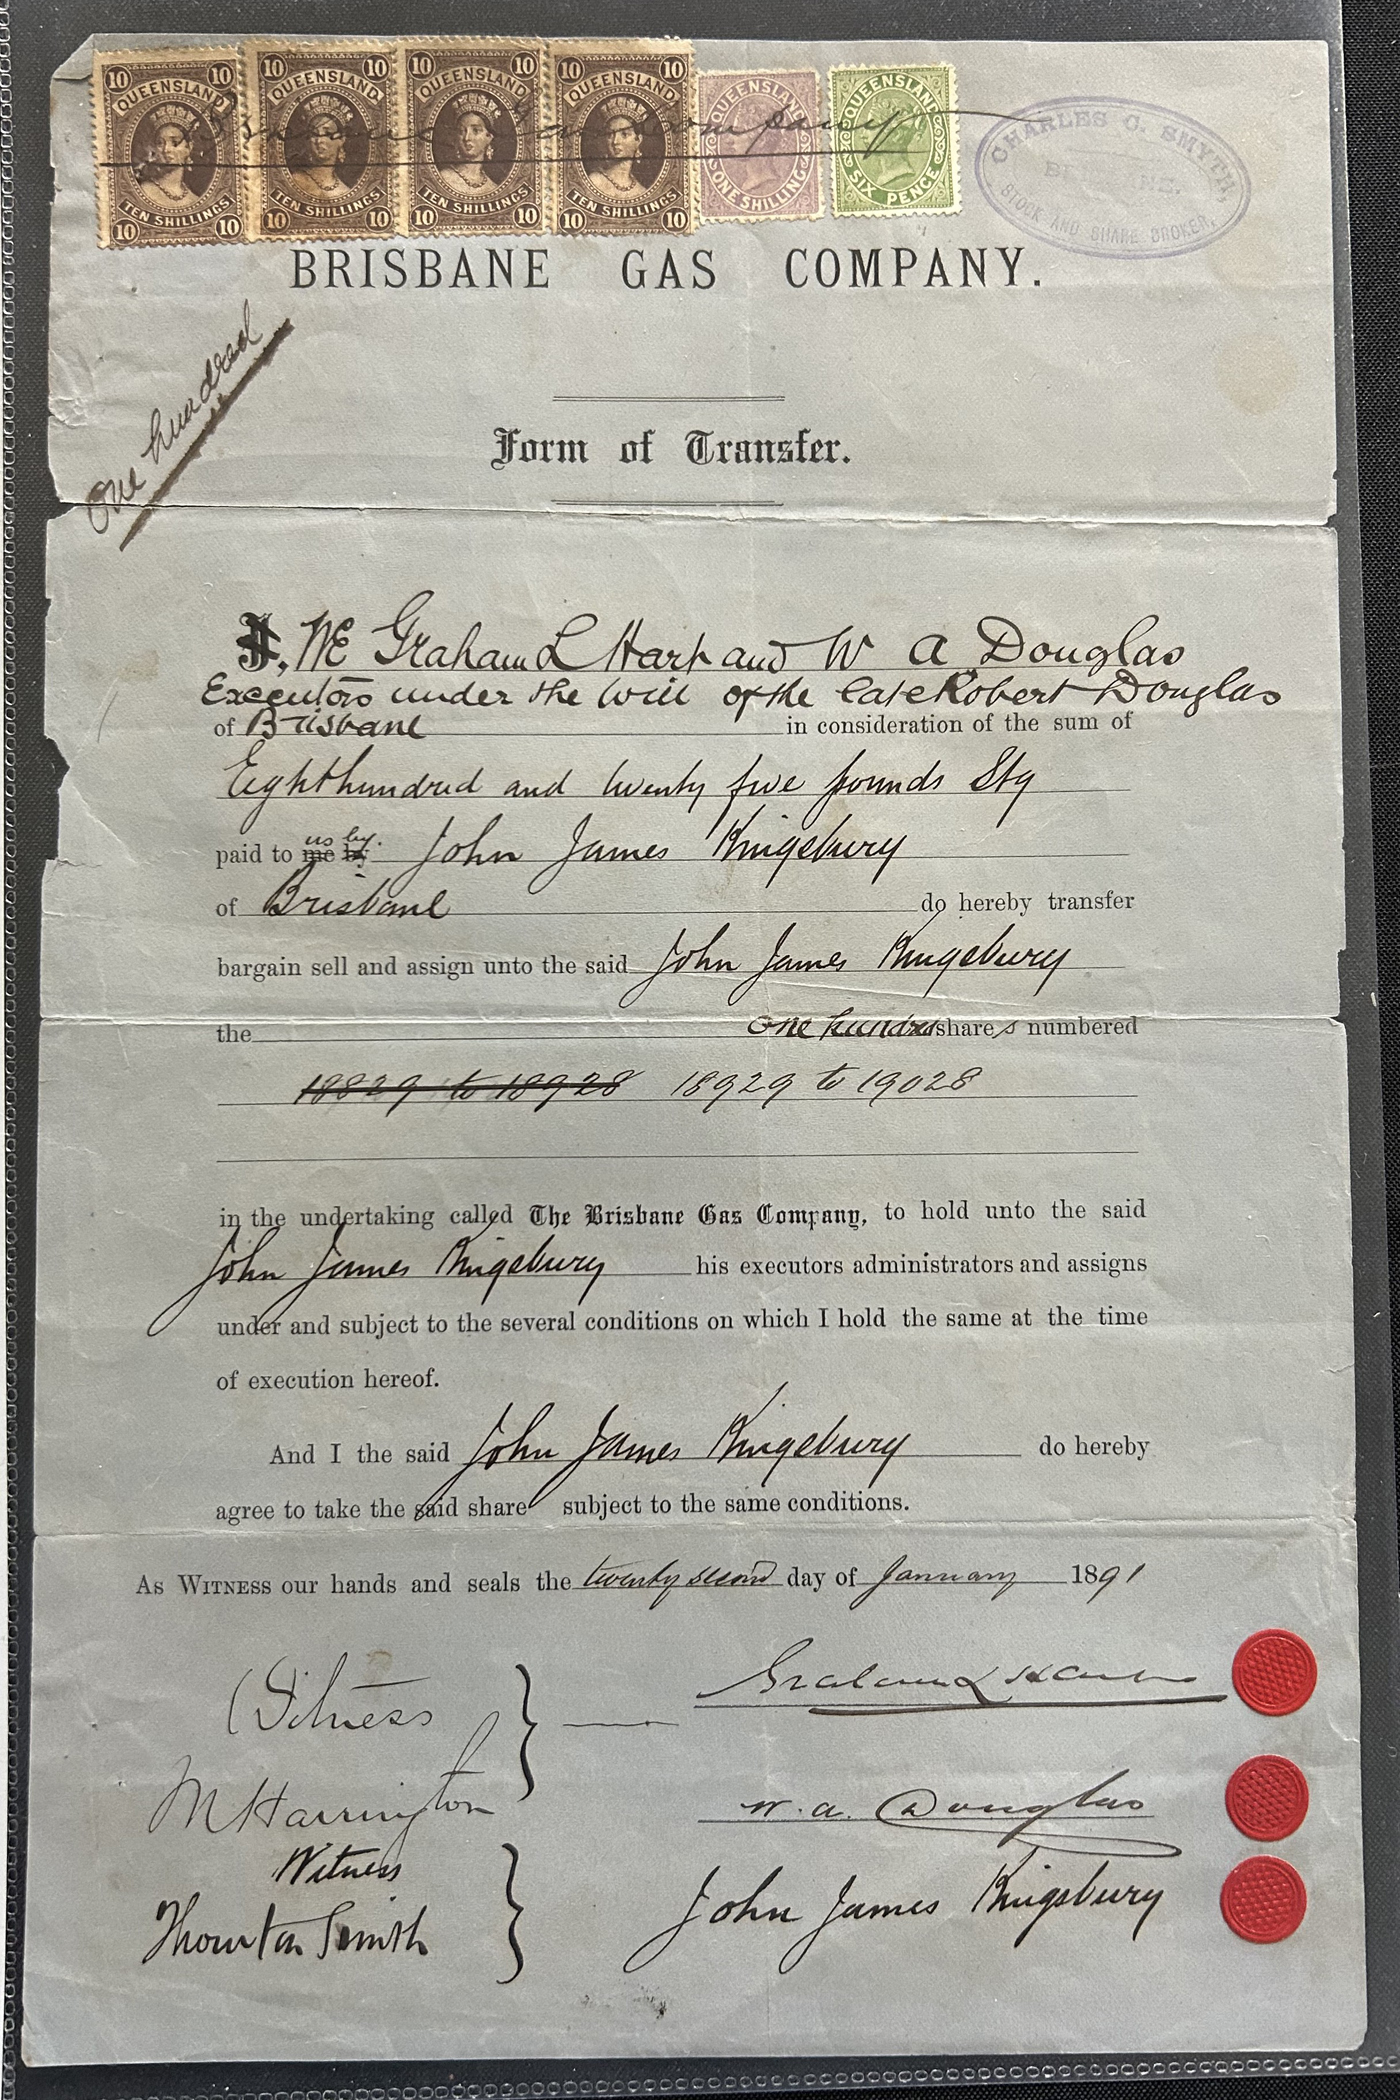 10 10 10 10 10 10 10 10
QUEENSLAND QUEENSLAND QUEENSLAND QUEENSLAND QUEENSLAND QUEENSLAND
Brisbane Gas Company
TEN SHILLINGS TEN SHILLINGS TEN SHILLINGS TEN SHILLINGS ONE SHILLING SIX PENCE
10 10 10 10 10 10 10 10
CHARLES C. SMYTH,
BRISBANE.
STOCK AND SHARE BROKER.
BRISBANE GAS COMPANY.
One hundred
Form of Transfer.
I, WE Graham L Hart and W A Douglas
Executors under the Will of the late Robert Douglas
of Brisbane in consideration of the sum of
Eight hundred and twenty five pounds Stg
us by.
paid to me by John James Kingsbury
of Brisbane do hereby transfer
bargain sell and assign unto the said John James Kingsbury
the One hundred shares numbered
18829 to 18928 18929 to 19028
in the undertaking called The Brisbane Gas Company, to hold unto the said
John James Kingsbury his executors administrators and assigns
under and subject to the several conditions on which I hold the same at the time
of execution hereof.
And I the said John James Kingsbury do hereby
agree to take the said share subject to the same conditions.
As WITNESS our hands and seals the twenty second day of January 1891
Witness } Graham L Hart
M Harrington W. A. Douglas
Witness
Thornton Smith } John James Kingsbury